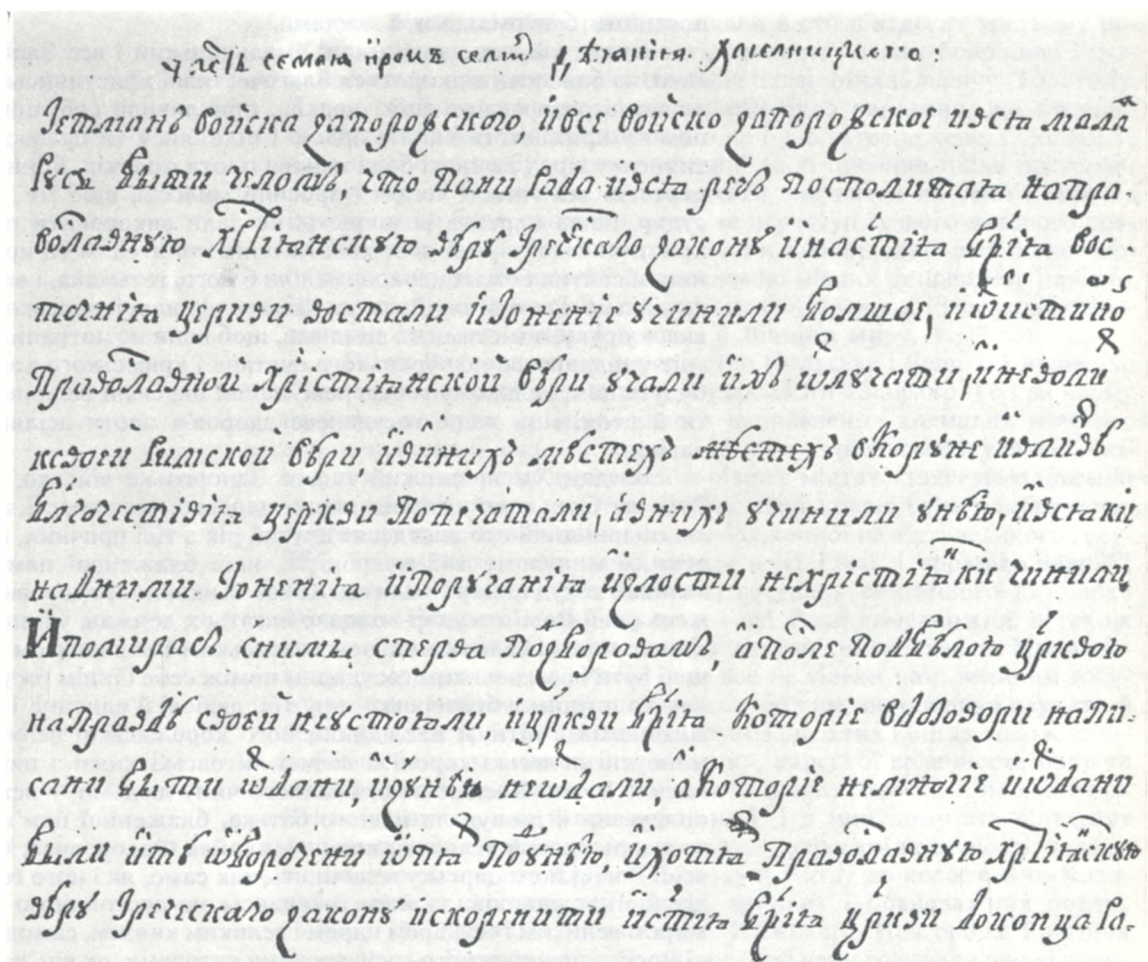 Хмелницкого:
Гетманъ войска запорозского, и все войско запорозское и вся малаꙗ
Русь бьют челомъ что пани рада и вся речь посполитаꙗ на пра-
вославную хрстиꙗнскую вѣру греческаго закону и на стиꙗ бжиꙗ вос
точниꙗ церкви востали и гоненіе учинили болшое, и ѿ истинно
православной христиꙗнской вѣри учали ихъ ѿлучати, и неволи
к своей римской вѣри, и в инихъ мѣстехъ в коруне и в литвѣ
благочестивіꙗ церкви попечатали, и в нихъ учинили унѣю, и всꙗкі
над ними гонениꙗ и поруганиꙗ и злости нехрістиꙗнски чинили
И помирꙗсь с ними сперва под Зборовомъ, а после под Бѣлою церквою
на правдѣ своей не устоꙗли, и церкви бжиꙗ которіе в договори напи-
сани были ѿдати, из унѣи не ѿдали, а которіе немногіе и ѿдани
были и тѣ ѡборочени ѡпꙗть под унѣю и хотꙗ православную хрстиꙗнскую
вѣру греческаго закону искоренити и стиꙗ бжиꙗ церкви до конца ра-